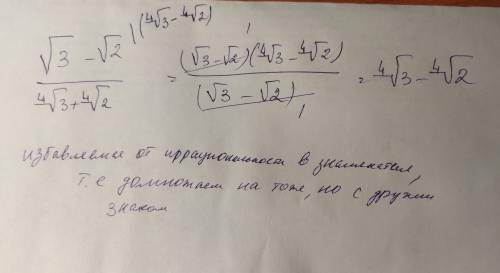 (√3 − √2) / (⁴√3 + ⁴√2) |(⁴√3 − ⁴√2) = (√3 − √2)(⁴√3 − ⁴√2) / (√3 − √2) = ⁴√3 − ⁴√2
избавляемся от иррациональности в знаменателе,
т.е домножаем на тоже, но с другим
знаком